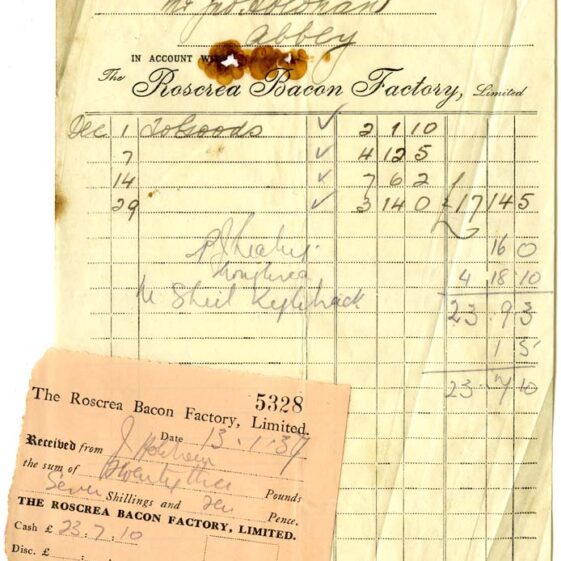 Mr Jno. Holohan
Abbey
IN ACCOUNT WITH
The Roscrea Bacon Factory, Limited
Dec 1 To Goods ✓ 2 1 10
7 ✓ 4 12 5
14 ✓ 7 6 2
29 ✓ 3 14 0 17 14 5
16 0
4 18 10
23 . 9 3
1 5
23 . 7 10
5328
The Roscrea Bacon Factory, Limited.
Date 13.1.37
Received from J Holohan
the sum of Twenty three Pounds
Seven Shillings and ten Pence.
THE ROSCREA BACON FACTORY, LIMITED.
Cash £ 23 . 7 . 10
Disc. £